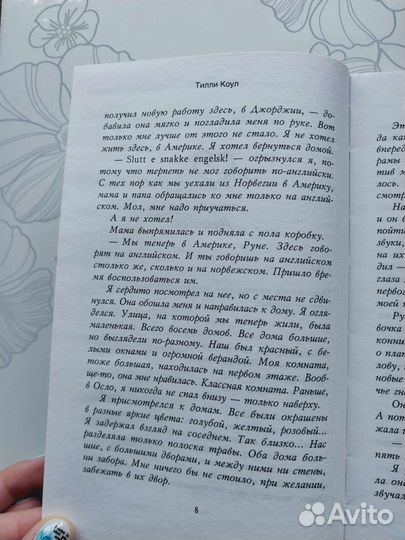 Тилли Коул
получил новую работу здесь, в Джорджии, — до-
бавила она мягко и погладила меня по руке. Вот
только мне лучше от этого не стало. Я не хотел
жить здесь, в Америке. Я хотел вернуться домой.
— Slutt e snakke engelsk! — огрызнулся я, по-
тому что терпеть не мог говорить по-английски.
С тех пор как мы уехали из Норвегии в Америку,
мама и папа обращались ко мне только на англий-
ском. Мол, мне надо приучаться.
А я не хотел!
Мама выпрямилась и подняла с пола коробку.
— Мы теперь в Америке, Руне. Здесь гово-
рят на английском. И ты говоришь на английском
столько же, сколько и на норвежском. Пришло вре-
мя воспользоваться им.
Я сердито посмотрел на нее, но с места не сдви-
нулся. Она обошла меня и направилась к дому. Я огля-
делся. Улица, на которой мы теперь жили, была
маленькая. Всего восемь домов. Все дома большие,
но выглядели по-разному. Наш был красный, с бе-
лыми окнами и огромной верандой. Моя комната,
тоже большая, находилась на первом этаже. Вооб-
ще-то, она мне нравилась. Классная комната. Раньше,
в Осло, я никогда не спал внизу — только наверху.
Я присмотрелся к домам. Все были окрашены
в разные яркие цвета: голубой, желтый, розовый...
Я задержал взгляд на соседнем. Так близко... Нас
разделяла только полоска травы. Оба дома боль-
шие, с большими дворами, и между ними ни стены,
ни забора. Мне ничего бы не стоило, при желании,
забежать в их двор.
8
Эт
да как
вперед
рамы
тив м
на
Н
и он б
пойти
и он
его
на
глаза
первом
Ру
точки
конни
по
лову,
и та
первой
А пот
—
пять
—
звучал
Avito